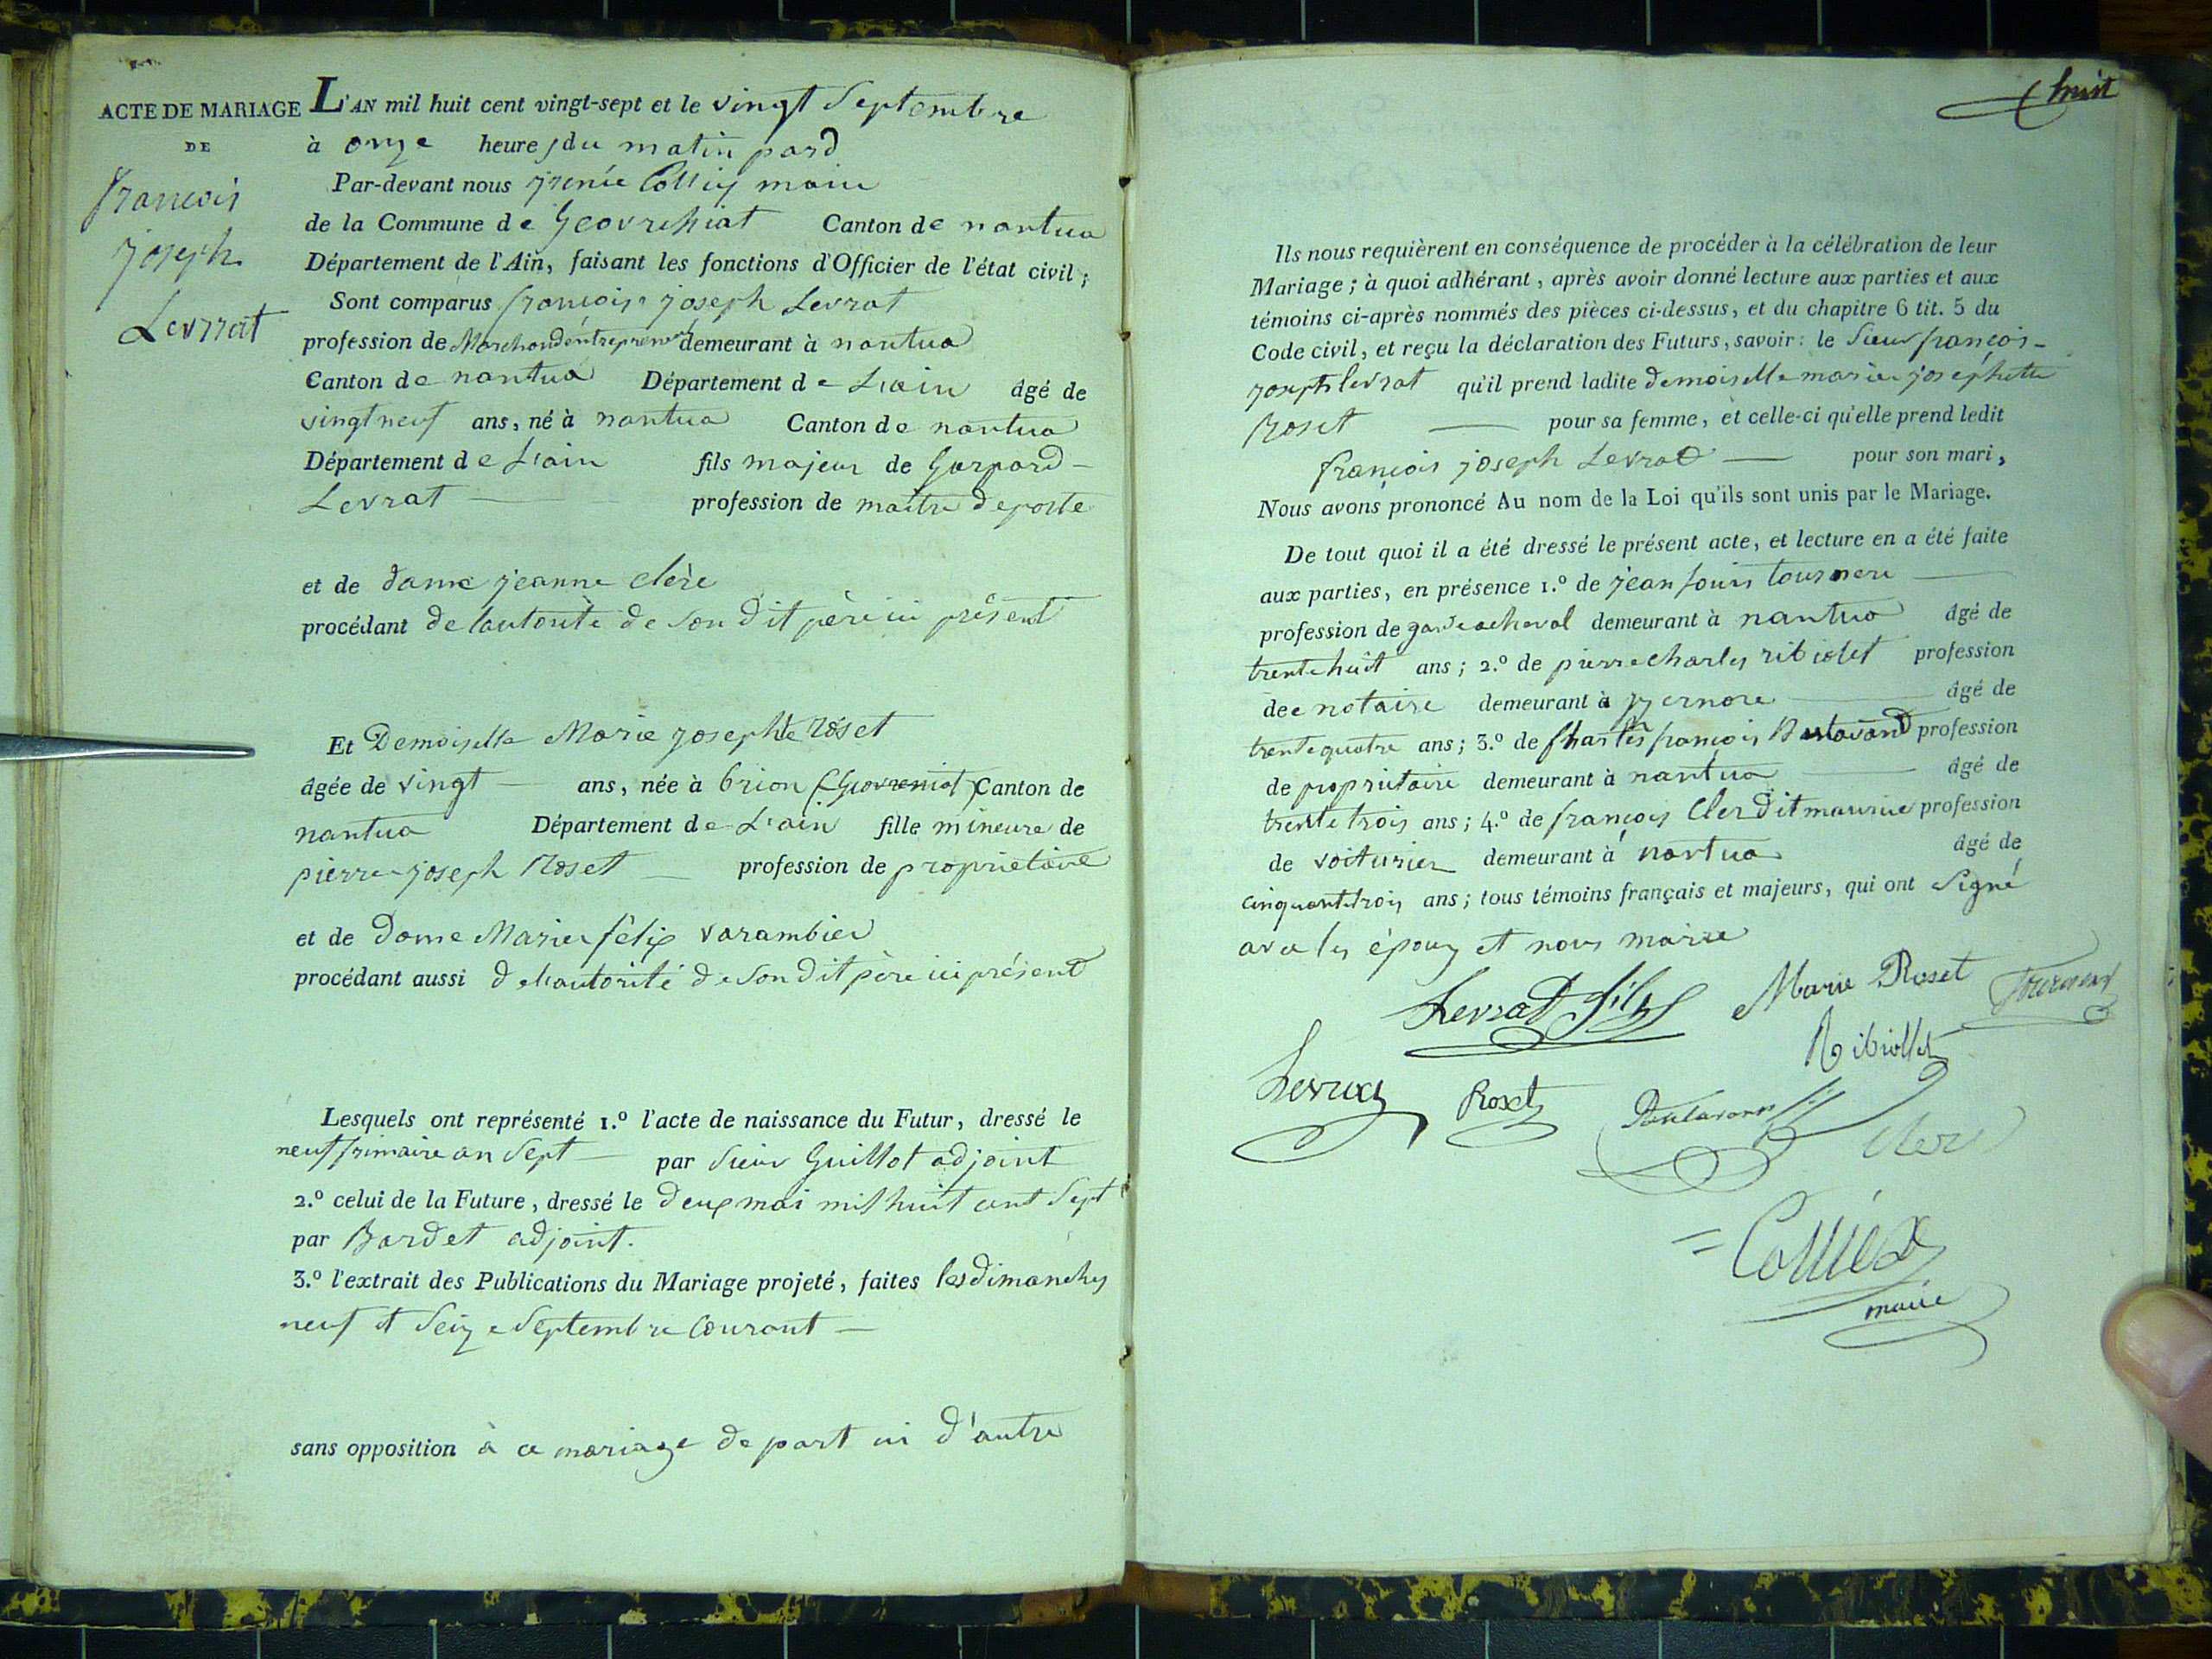 ACTE DE MARIAGE
DE
françois
joseph
Levrrat
L'AN mil huit cent vingt-sept et le vingt Septembre
à onze heures du matin pard
Par-devant nous jrenée Colliex maire
de la Commune de Geovressiat Canton de nantua
Département de l'Ain, faisant les fonctions d'Officier de l'état civil;
Sont comparus françois joseph Levrat
profession de Marchand entrepreneur demeurant à nantua
Canton de nantua Département de L'ain âgé de
vingt neuf ans, né à nantua Canton de nantua
Département de L'ain fils majeur de Gaspard-
Levrat profession de maître de poste
et de dame jeanne clère
procédant de l'autorité de son dit père ici présent
Et Demoiselle Marie josephte roset
âgée de vingt ans, née à brion (Geovreissiat) Canton de
nantua Département de L'ain fille mineure de
pierre joseph Roset profession de propriétaire
et de dame Marie félix varambier
procédant aussi de l'autorité de son dit père ici présent
Lesquels ont représenté 1.º l'acte de naissance du Futur, dressé le
neuf frimaire an sept par sieur Guillot adjoint
2.º celui de la Future, dressé le deux mai mil huit cent sept
par Bardet adjoint.
3.º l'extrait des Publications du Mariage projeté, faites les dimanches
neuf et seize septembre courant
sans opposition à ce mariage de part ni d'autre
huit
Ils nous requièrent en conséquence de procéder à la célébration de leur
Mariage; à quoi adhérant, après avoir donné lecture aux parties et aux
témoins ci-après nommés des pièces ci-dessus, et du chapitre 6 tit. 5 du
Code civil, et reçu la déclaration des Futurs, savoir: le sieur françois-
joseph levrat qu'il prend ladite demoiselle marie josephette
Roset pour sa femme, et celle-ci qu'elle prend ledit
françois joseph Levrat pour son mari,
Nous avons prononcé Au nom de la Loi qu'ils sont unis par le Mariage.
De tout quoi il a été dressé le présent acte, et lecture en a été faite
aux parties, en présence 1.º de jean louis tournere
profession de garde acheval demeurant à nantua âgé de
trente huit ans; 2.º de pierre charles ribiolet profession
dee notaire demeurant à jzernore âgé de
trente quatre ans; 3.º de françois profession
de propriétaire demeurant à nantua âgé de
trente trois ans; 4.º de françois Cler dit maurice profession
de voiturier demeurant à nantua âgé de
cinquante trois ans; tous témoins français et majeurs, qui ont signé
avec les époux et nous maire
Levrat fils Marie Roset
Ribiollet
Levrat Roset
Clerc
Colliex
maire